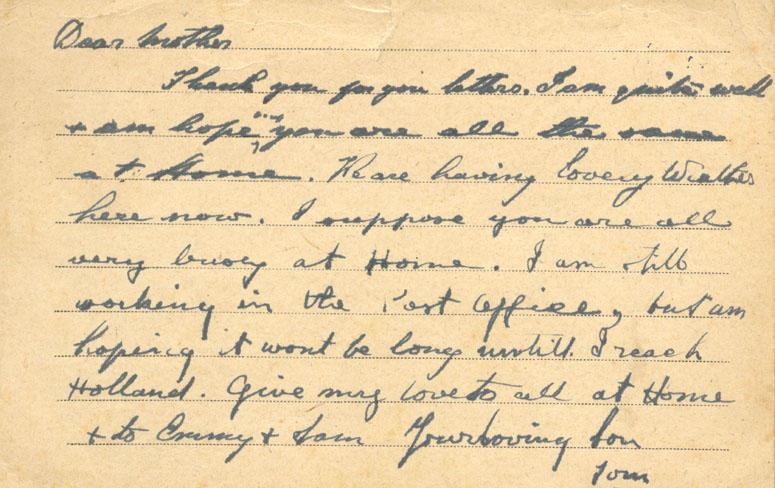 Dear Mother
Thank you for your letters. I am quite well
& am hope "ing" you are all the same
at Home. We are having Lovely Weather
here now. I suppose you are all
very busey at Home. I am still
working in the Post Office, but am
hoping it wont be long untill I reach
Holland. Give my love to all at Home
& to Emmy & Sam Your Loving Son
Tom